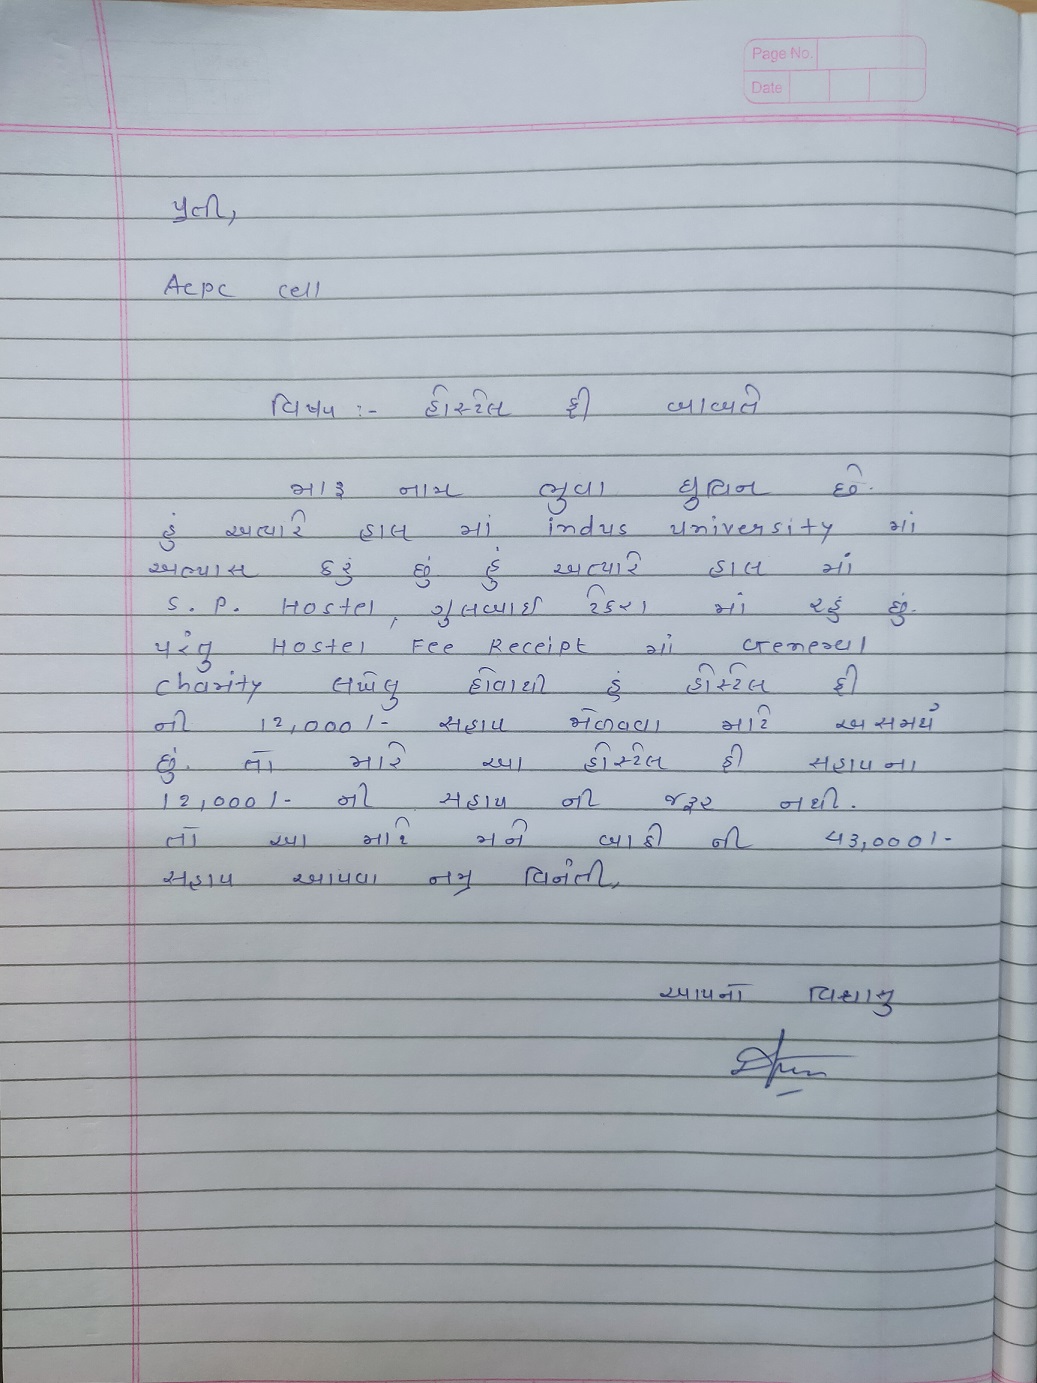 Page No.
Date
પ્રતી,
Acpc cell
વિષય :- હોસ્ટેલ ફી બાબતે
મારૂ નામ ભુવા ધ્રુવિન છે.
હું અત્યારે હાલ માં indus university માં
અભ્યાસ કરું છું હું અત્યારે હાલ માં
S. P. Hostel, ગુલબાઈ ટેકરા માં રહું છું.
પરંતુ Hostel Fee Receipt માં General
Charity લખેલુ હોવાથી હું હોસ્ટેલ ફી
ની 12,000/- સહાય મેળવવા માટે અસમર્થ
છું. તો મારે આ હોસ્ટેલ ફી સહાયના
12,000/- ની સહાય ની જરૂર નથી.
તો આ માટે મને બાકી ની 43,000/-
સહાય આપવા નમ્ર વિનંતી.
આપનો વિશ્વાસુ